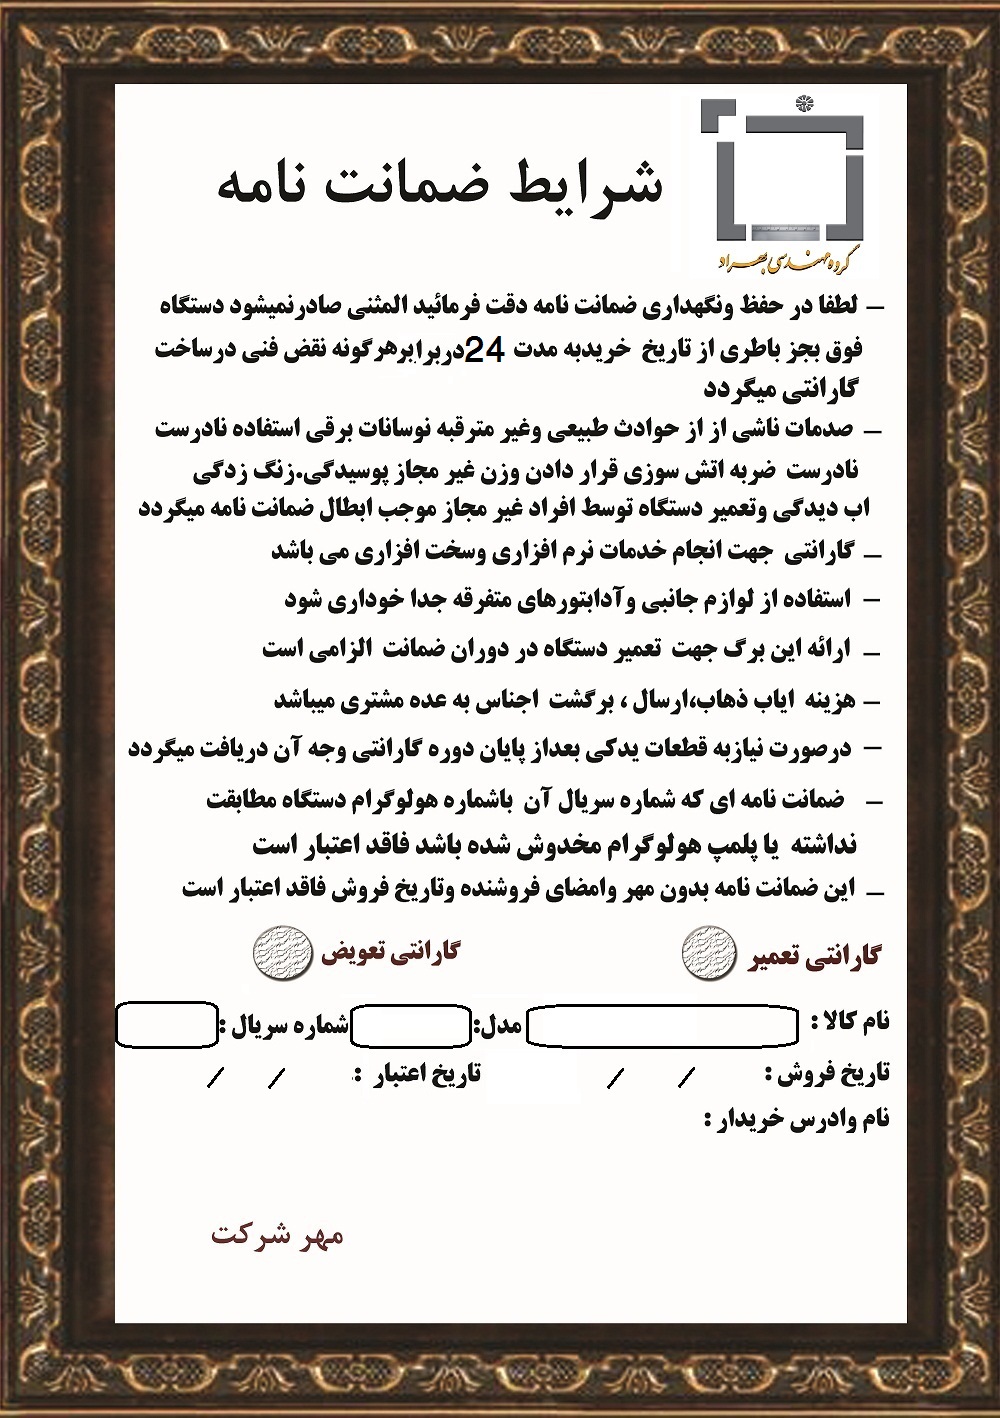 گروه مهندسی بهراد
شرایط ضمانت نامه
– لطفا در حفظ ونگهداری ضمانت نامه دقت فرمائید المثنی صادرنمیشود دستگاه
فوق بجز باطری از تاریخ خریدبه مدت 24دربرابرهرگونه نقض فنی درساخت
گارانتی میگردد
– صدمات ناشی از از حوادث طبیعی وغیر مترقبه نوسانات برقی استفاده نادرست
نادرست ضربه اتش سوزی قرار دادن وزن غیر مجاز پوسیدگی.زنگ زدگی
اب دیدگی وتعمیر دستگاه توسط افراد غیر مجاز موجب ابطال ضمانت نامه میگردد
– گارانتی جهت انجام خدمات نرم افزاری وسخت افزاری می باشد
– استفاده از لوازم جانبی وآدابتورهای متفرقه جدا خوداری شود
– ارائه این برگ جهت تعمیر دستگاه در دوران ضمانت الزامی است
– هزینه ایاب ذهاب،ارسال ، برگشت اجناس به عده مشتری میباشد
– درصورت نیازبه قطعات یدکی بعداز پایان دوره گارانتی وجه آن دریافت میگردد
– ضمانت نامه ای که شماره سریال آن باشماره هولوگرام دستگاه مطابقت
نداشته یا پلمپ هولوگرام مخدوش شده باشد فاقد اعتبار است
– این ضمانت نامه بدون مهر وامضای فروشنده وتاریخ فروش فاقد اعتبار است
گارانتی تعمیر گارانتی تعویض
نام کالا : مدل: شماره سریال :
تاریخ فروش : / / تاریخ اعتبار : / /
نام وادرس خریدار :
مهر شرکت